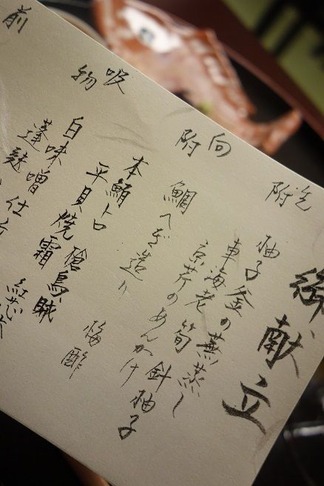 御献立
先附
柚子釜の蕪蒸し
車海老 筍 針柚子
京芹のあんかけ
向附
鯛へぎ造り
本鮪トロ 槍烏賊
平貝焼霜 梅酢
吸物
白味噌仕
蓬麩
前